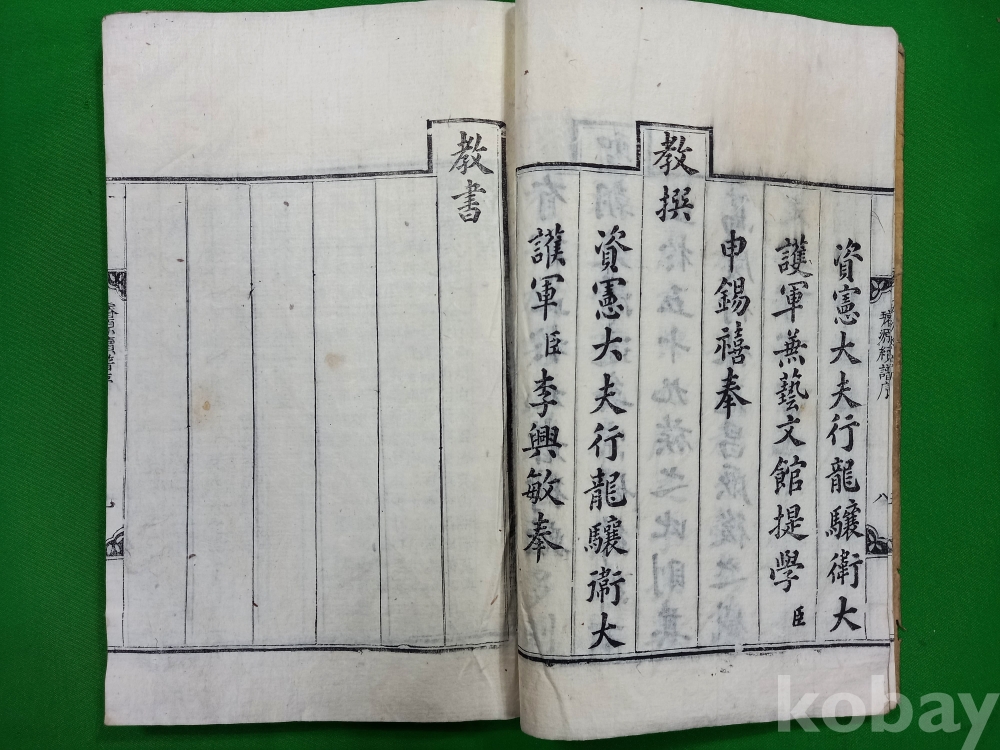 資憲大夫行龍驤衛大
護軍兼藝文館提學 臣
申錫禧奉
教撰
資憲大夫行龍驤衛大
護軍 臣 李興敏奉
教書
八
九
kobay